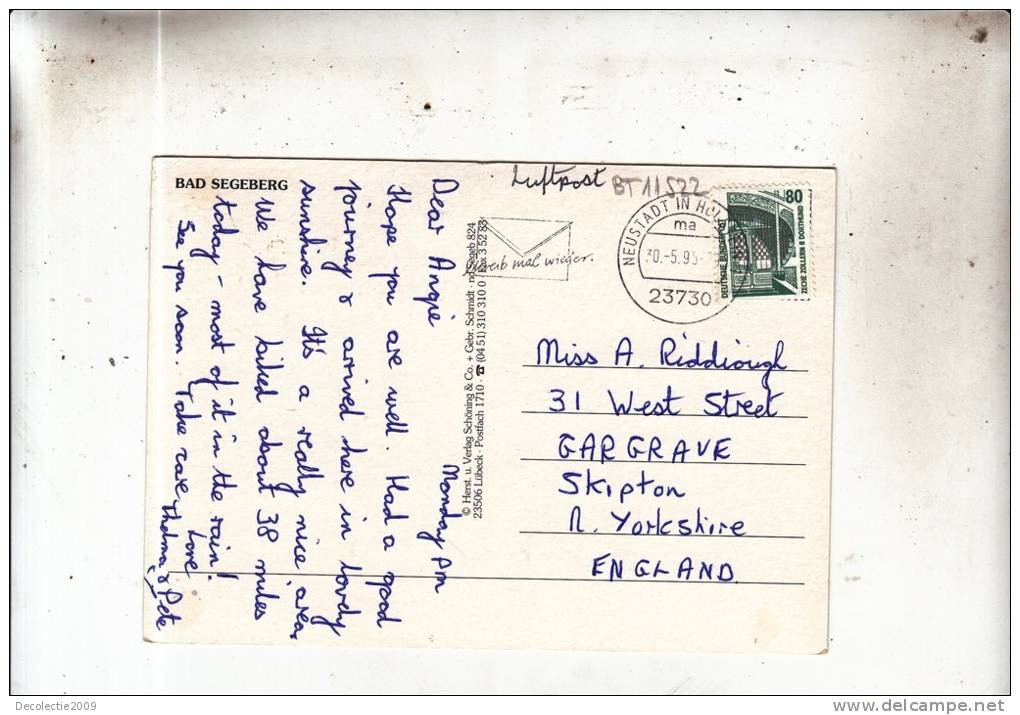 BAD SEGEBERG
Luftpost
BT 11522
Monday pm
Dear Angie
Hope you are well. Had a good
journey & arrived here in lovely
sunshine. It's a really nice area.
We have biked about 38 miles
today - most of it in the rain!
See you soon. Take care, Love
Thelma & Pete
© Herst. u. Verlag Schöning & Co. + Gebr. Schmidt · Segeb 824
23506 Lübeck · Postfach 1710 · ☎ (04 51) 310 310 3 52 88
mal wieder.
NEUSTADT IN HOL
ma
30.-5.95-
23730
80
DEUTSCHE BUNDESPOST
ZECHE ZOLLERN II DORTMUND
Miss A. Riddiough
31 West Street
GARGRAVE
Skipton
N. Yorkshire
ENGLAND
Decolectie2009
www.delcampe.net